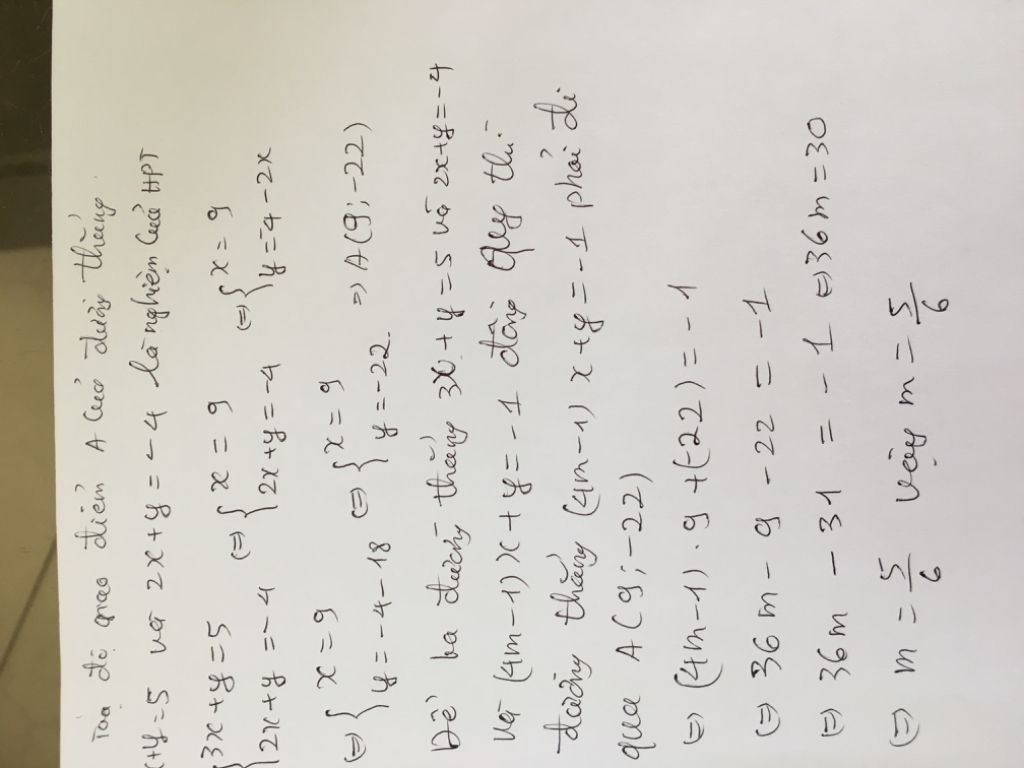 Toạ độ giao điểm A của đường thẳng
x+y=5 và 2x+y=-4 là nghiệm của HPT
{3x+y=5 2x+y=-4 (=) {x=9 2x+y=-4 (=) {x=9 y=4-2x
(=) {x=9 y=-4-18 (=) {x=9 y=-22. => A(9;-22)
Để ba đường thẳng 3x+y=5 và 2x+y=-4
và (4m-1)x+y=-1 đồng quy thì:
đường thẳng (4m-1)x+y=-1 phải đi
qua A(9;-22)
=) (4m-1).9+(-22)=-1
(=) 36m-9-22=-1
(=) 36m-31=-1 (=) 36m=30
(=) m=5/6 vậy m=5/6